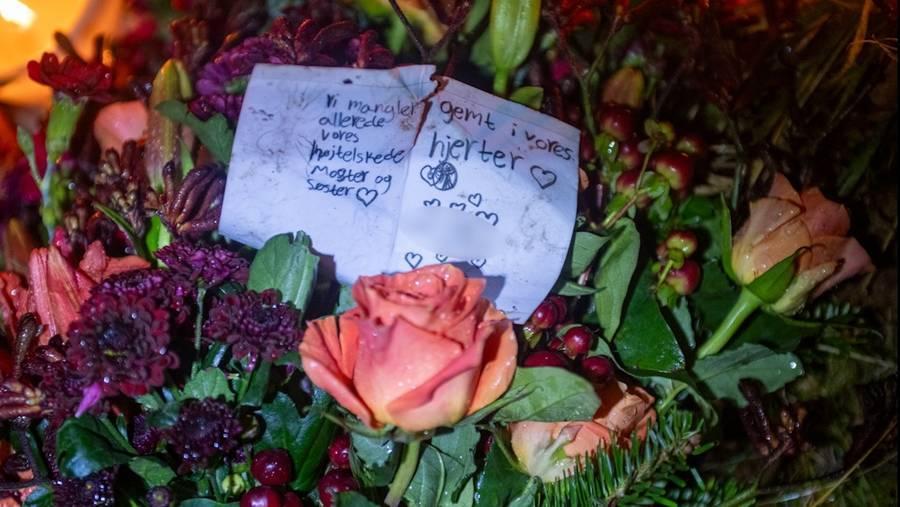 Vi mangler
allerede
vores
højtelskede
Moster og
Søster
gemt i vores
hjerter